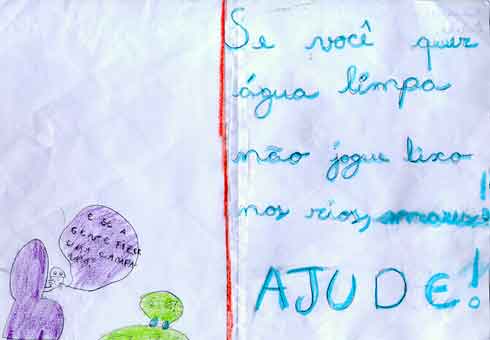 E SE A
GENTE FIZER
UMA CAMPA
Se você quer
água limpa
não jogue lixo
nos rios, !
AJUDE!